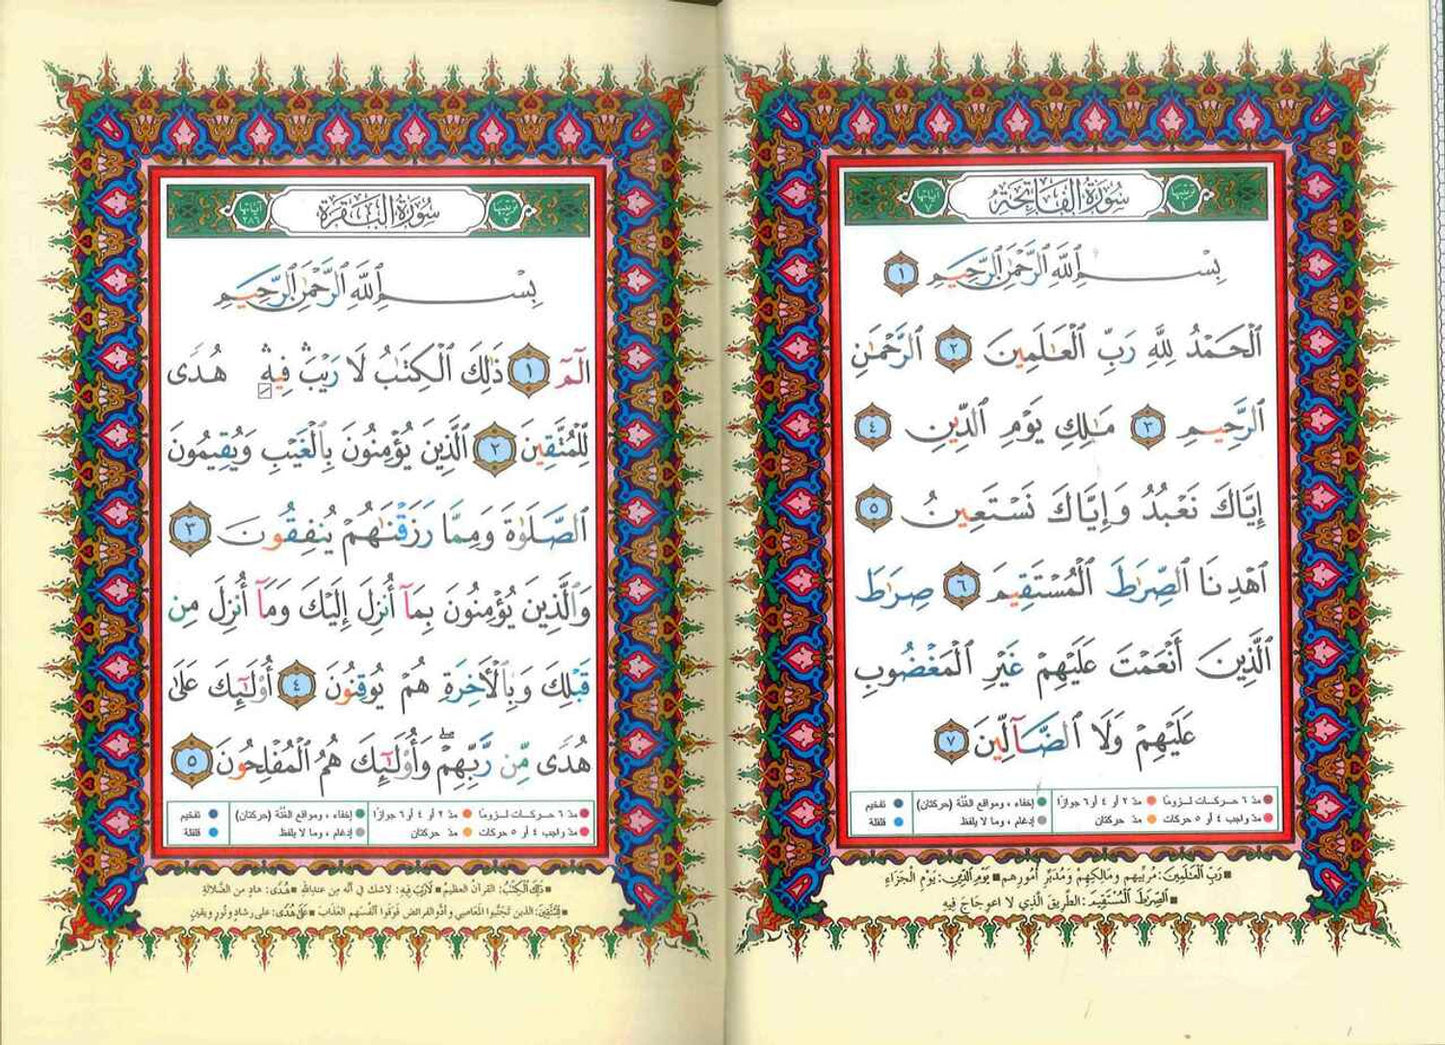 ترتيبها ١ سُورَةُ الْفَاتِحَةِ آياتها ٧
بِسْمِ ٱللَّهِ ٱلرَّحْمَٰنِ ٱلرَّحِيمِ ١
ٱلْحَمْدُ لِلَّهِ رَبِّ ٱلْعَٰلَمِينَ ٢ ٱلرَّحْمَٰنِ
ٱلرَّحِيمِ ٣ مَٰلِكِ يَوْمِ ٱلدِّينِ ٤
إِيَّاكَ نَعْبُدُ وَإِيَّاكَ نَسْتَعِينُ ٥
ٱهْدِنَا ٱلصِّرَٰطَ ٱلْمُسْتَقِيمَ ٦ صِرَٰطَ
ٱلَّذِينَ أَنْعَمْتَ عَلَيْهِمْ غَيْرِ ٱلْمَغْضُوبِ
عَلَيْهِمْ وَلَا ٱلضَّآلِّينَ ٧
مدّ ٦ حركـات لـزومًا مدّ ٢ أو ٤ أو ٦ جوازًا إخفاء ، ومواقع الغُنَّة (حركتان) تفخيم
مدّ واجب ٤ أو ٥ حركات مدّ حركتان إدغام ، وما لا يلفظ قلقلة
▪ رَبِّ ٱلْعَٰلَمِينَ: مُرَبِّيهِم ومَالِكِهِمْ وَمُدَبِّرِ أُمُورِهِم ▪ يَوْمِ ٱلدِّينِ: يَوْمِ الْجَزَاءِ
▪ ٱلصِّرَٰطَ ٱلْمُسْتَقِيمَ: الطَّرِيقَ الَّذِي لا اعْوِجَاجَ فِيهِ
ترتيبها ٢ سُورَةُ الْبَقَرَةِ آياتها ٢٨٦
بِسْمِ ٱللَّهِ ٱلرَّحْمَٰنِ ٱلرَّحِيمِ
الٓمٓ ١ ذَٰلِكَ ٱلْكِتَٰبُ لَا رَيْبَ ۛ فِيهِ ۛ هُدًى
لِّلْمُتَّقِينَ ٢ ٱلَّذِينَ يُؤْمِنُونَ بِٱلْغَيْبِ وَيُقِيمُونَ
ٱلصَّلَوٰةَ وَمِمَّا رَزَقْنَٰهُمْ يُنفِقُونَ ٣
وَٱلَّذِينَ يُؤْمِنُونَ بِمَآ أُنزِلَ إِلَيْكَ وَمَآ أُنزِلَ مِن
قَبْلِكَ وَبِٱلْأَخِرَةِ هُمْ يُوقِنُونَ ٤ أُو۟لَٰٓئِكَ عَلَىٰ
هُدًى مِّن رَّبِّهِمْ ۖ وَأُو۟لَٰٓئِكَ هُمُ ٱلْمُفْلِحُونَ ٥
مدّ ٦ حركـات لـزومًا مدّ ٢ أو ٤ أو ٦ جوازًا إخفاء ، ومواقع الغُنَّة (حركتان) تفخيم
مدّ واجب ٤ أو ٥ حركات مدّ حركتان إدغام ، وما لا يلفظ قلقلة
▪ ذَٰلِكَ ٱلْكِتَٰبُ: القرآن العظيم ▪ لَا رَيْبَ فِيهِ: لا شك في أنّه مِن عند الله ▪ هُدًى: هادٍ من الضّلالة
▪ لِّلْمُتَّقِينَ: الذين تجنّبوا المعاصي وأدَّوا الفرائض فَوَقَوا أنفُسَهم العذاب ▪ عَلَىٰ هُدًى: على رشادٍ ونُورٍ ويقينٍ